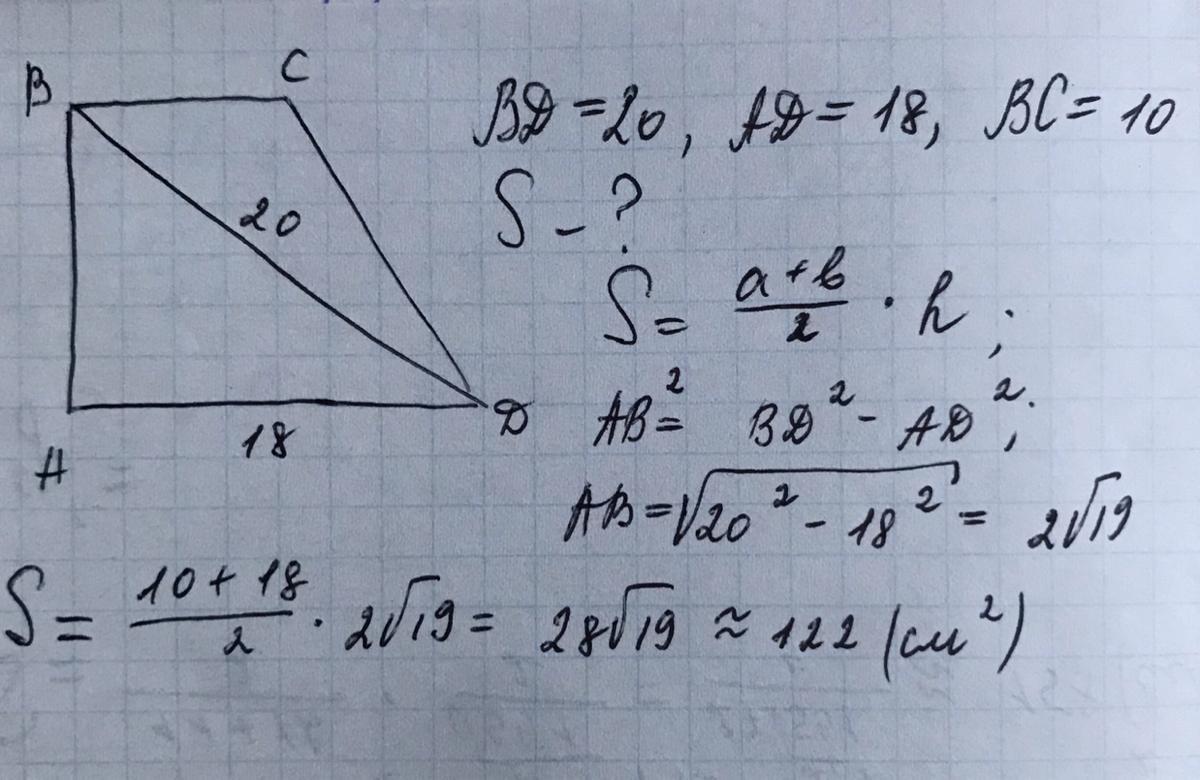 B
C
BD = 20, AD = 18, BC = 10
20
S - ?
S = a + b / 2 · h ;
18
D
A
AB² = BD² - AD²;
AB = √20² - 18² = 2√19
S = 10 + 18 / 2 · 2√19 = 28√19 ≈ 122 (см²)